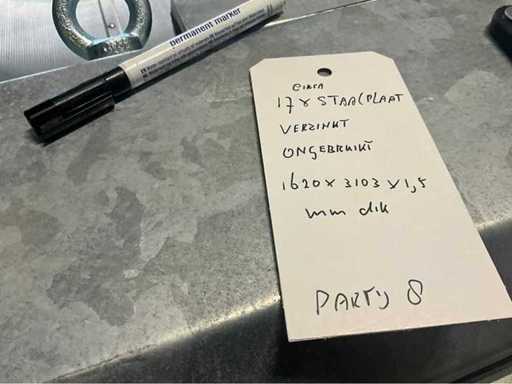 permanent marker
CIRCA
17 x STAALPLAAT
VERZINKT
ONGEBRUIKT
1620 x 3103 x 1,5
mm dik
PARTIJ 8